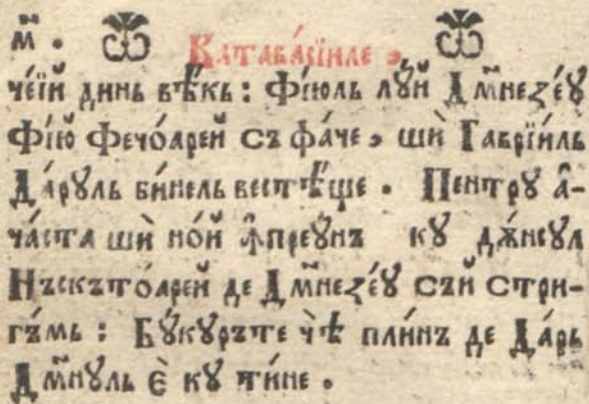 м҃. Катава́сїиле,
че́їй динь вѣ́къ: Фі́юль лꙋ́й Дм҃незе́ꙋ
Фі́ю Фечо́арей съ фа́че, шѝ Гаврїи́лъ
Да́руль би́нель вестѣ́ще. Пентрꙋ а҆-
ча́ста шѝ но́й ꙟ҆преꙋ́нъ кꙋ дѫ́нсꙋл
Нъскъто́арей де Дм҃незе́ꙋ съ́й стри-
гъ́мь: Бꙋ́кꙋръте че́ѣ пли́нъ де Да́рь
Дм҃нꙋль є҆̀ кꙋ ти́не.